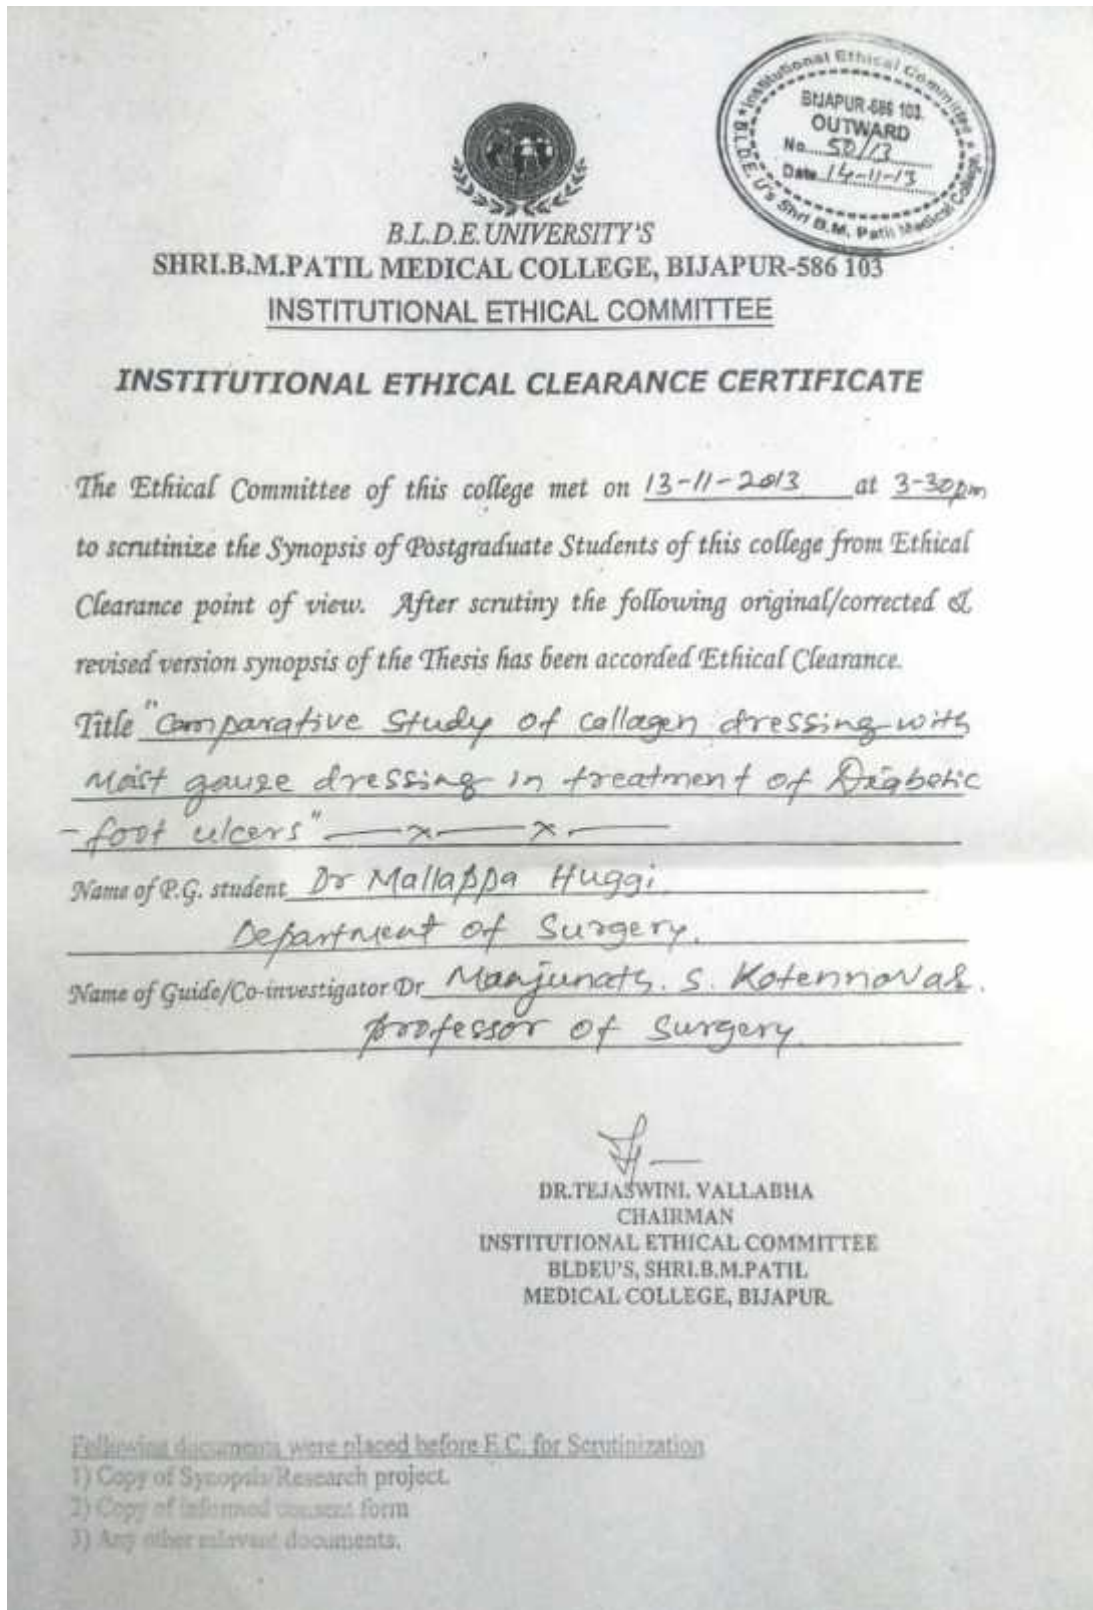 Institutional Ethical Committee
BIJAPUR-586 103.
OUTWARD
No. 50/13
Date 14-11-13
B.L.D.E.U's Shri B.M. Patil Medical College.
B.L.D.E. UNIVERSITY'S
SHRI.B.M.PATIL MEDICAL COLLEGE, BIJAPUR-586 103
INSTITUTIONAL ETHICAL COMMITTEE
INSTITUTIONAL ETHICAL CLEARANCE CERTIFICATE
The Ethical Committee of this college met on 13-11-2013 at 3-30pm
to scrutinize the Synopsis of Postgraduate Students of this college from Ethical
Clearance point of view. After scrutiny the following original/corrected &
revised version synopsis of the Thesis has been accorded Ethical Clearance.
Title "Comparative Study of callagen dressing with
Moist gauze dressing in treatment of Diabetic
-foot ulcers" —x—x—
Name of P.G. student Dr Mallappa Huggi
Department of Surgery.
Name of Guide/Co-investigator Dr Manjunath. S. Kotennavar.
professor of Surgery
DR.TEJASWINI. VALLABHA
CHAIRMAN
INSTITUTIONAL ETHICAL COMMITTEE
BLDEU'S, SHRI.B.M.PATIL
MEDICAL COLLEGE, BIJAPUR.
Following documents were placed before E.C. for Scrutinization
1) Copy of Synopsis/Research project.
2) Copy of informed consent form
3) Any other relevant documents.